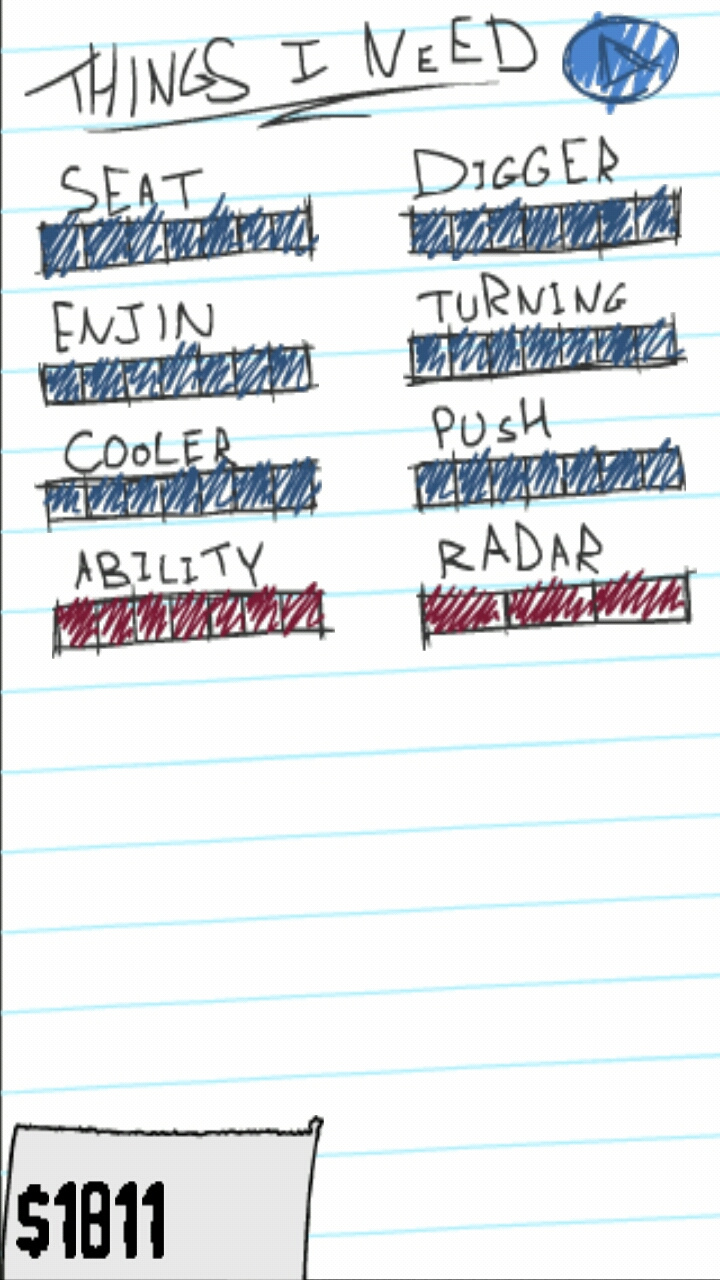 THINGS I NEED
SEAT
DIGGER
ENJIN
TURNING
COOLER
PUSH
ABILITY
RADAR
$1811